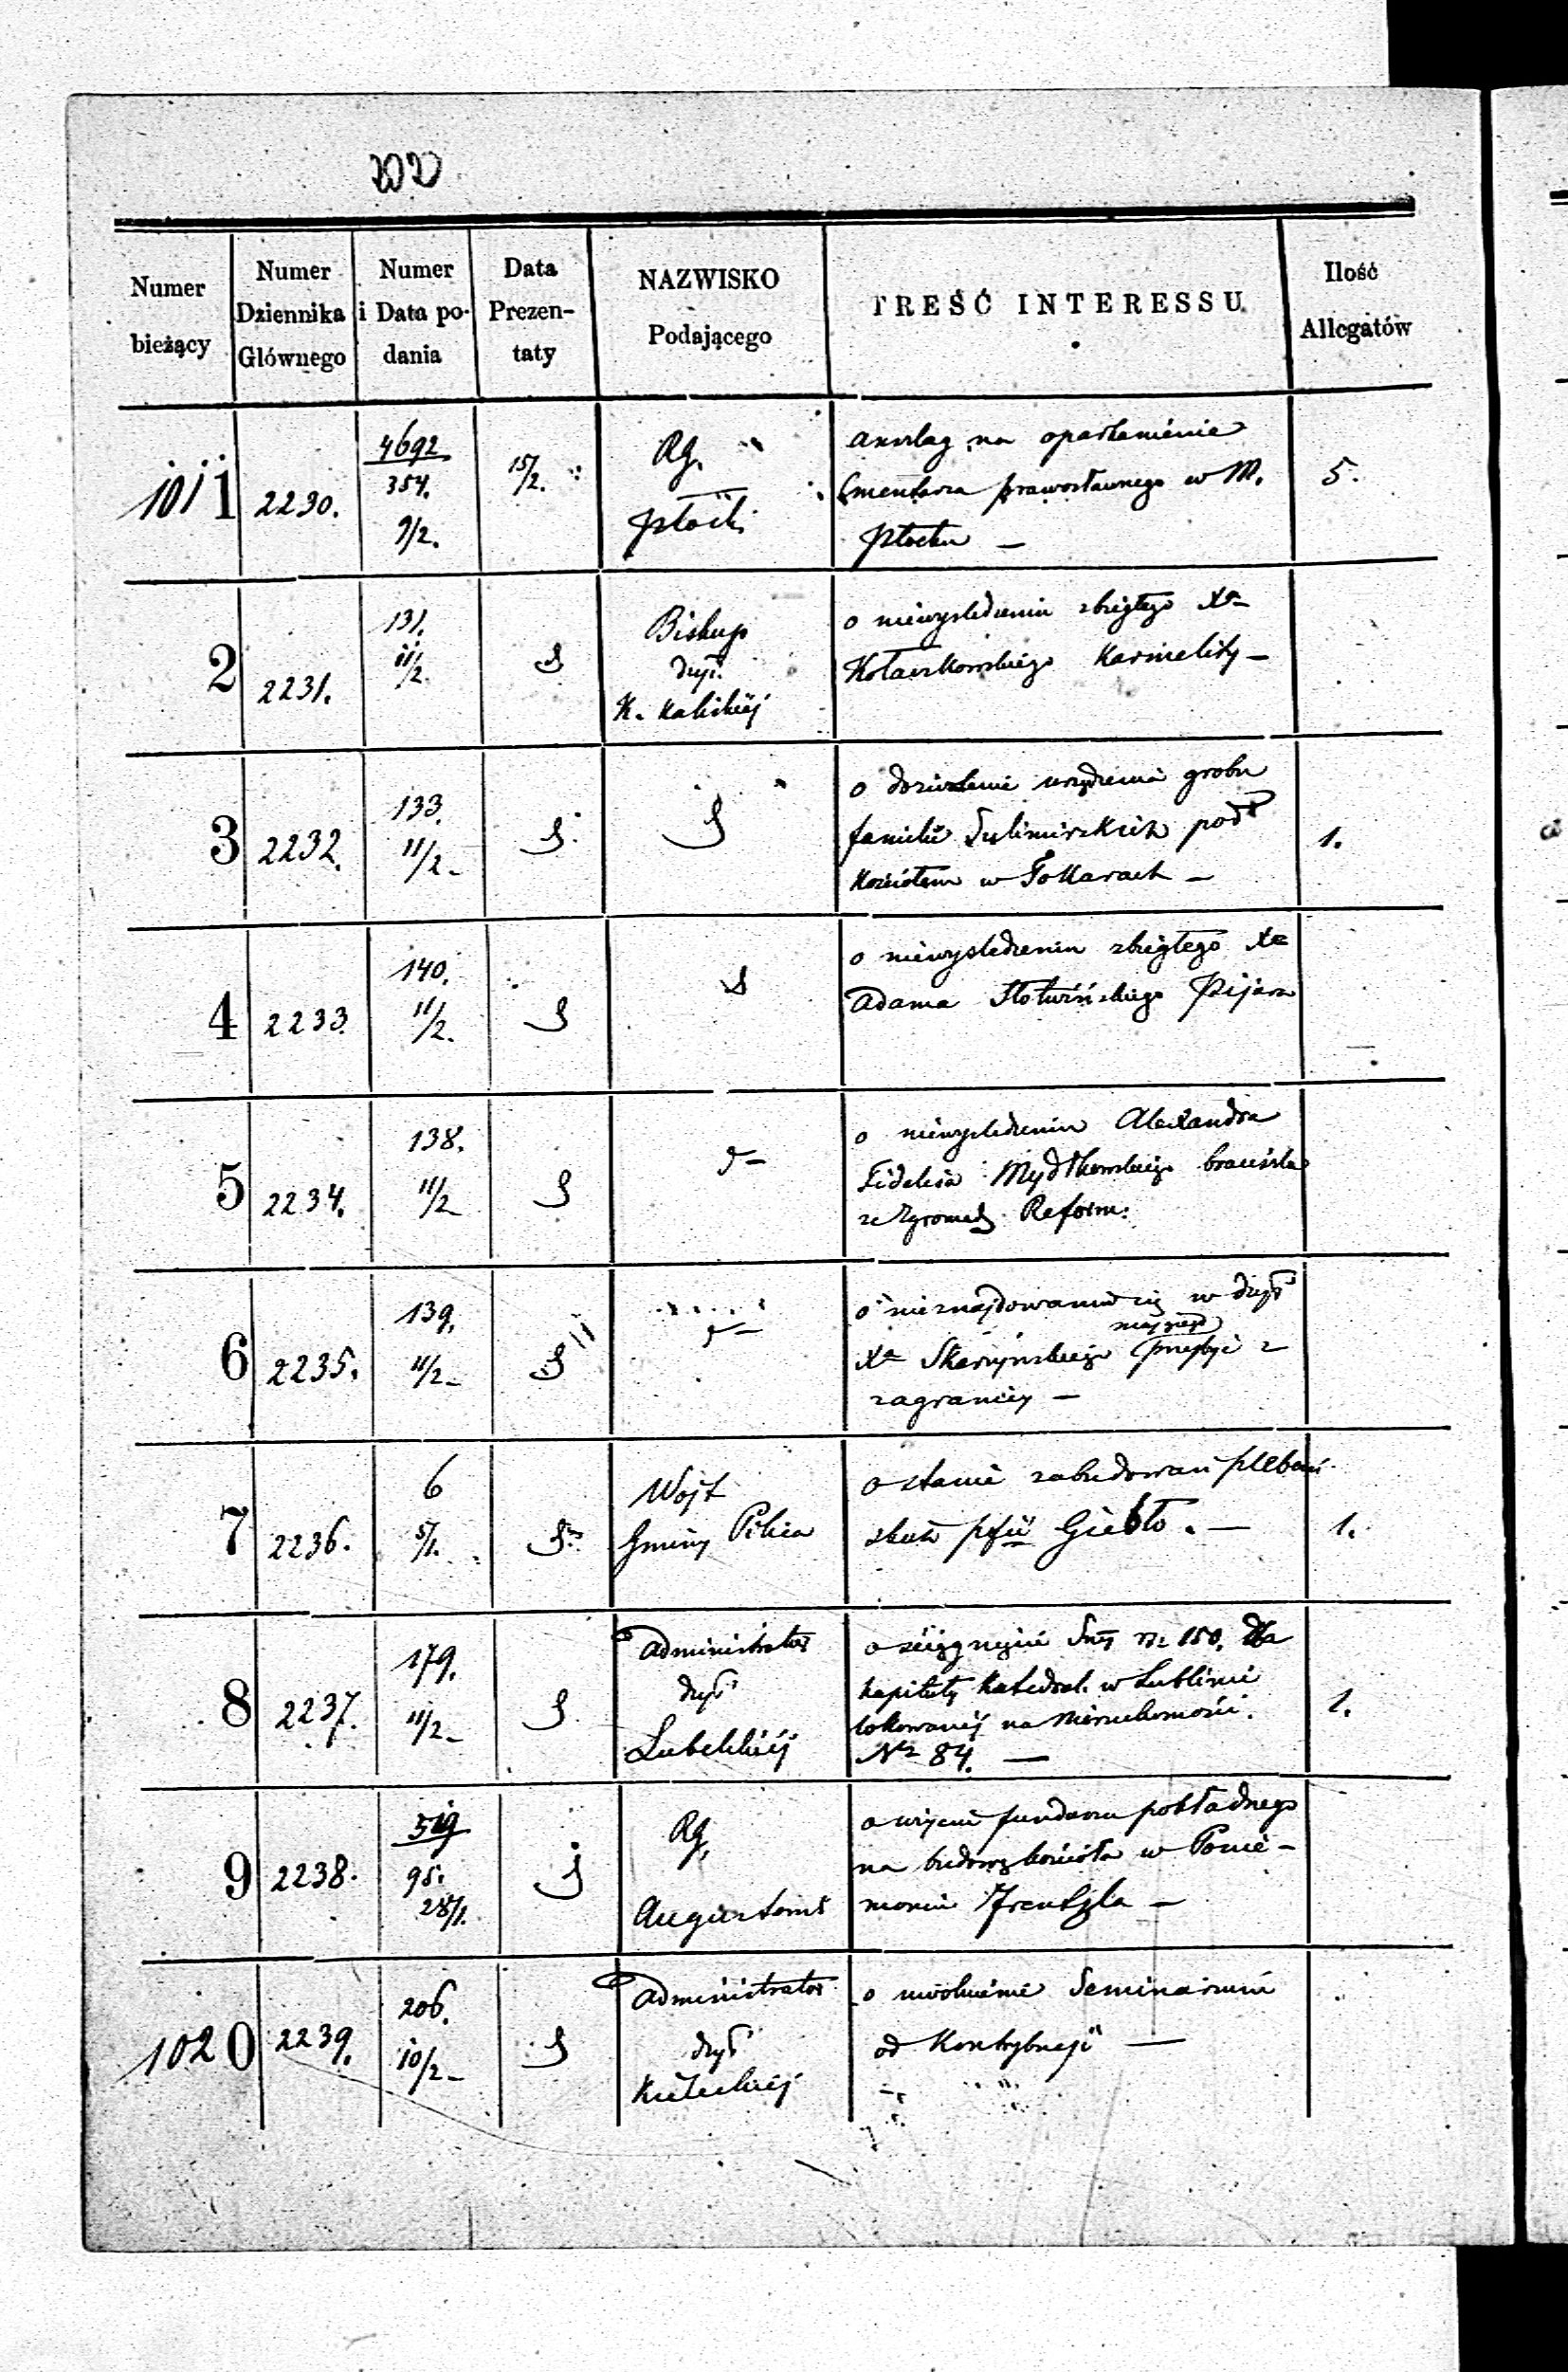 Numer bieżący
Numer Dziennika Głównego
Numer i Data podania
Data Prezentaty
NAZWISKO Podającego
TREŚĆ INTERESSU
Ilość Allegatów
1011
2230.
4692
354.
9/2.
15/2.
Rg.
Płocki
anszlag na oparkanienie
Cmentarza prawosławnego w M.
Płocku —
5.
2
2231.
131.
11/2
Biskup
dyec.
K. Kaliskiej
o niewyśledzeniu zbiegłego Xa
Kołaszkowskiego Karmelity —
3
2232.
133.
11/2.
o dozwolenie urządzenia grobu
familii Sulimirskich pod
Kościołem w Tokarach —
1.
4
2233.
140.
11/2.
o niewyśledzeniu zbiegłego Xa
Adama Słotwińskiego Pijara
5
2234.
138.
11/2
o niewyśledzeniu Alexandra
Fidelisa Mydłkowskiego braciszka
ze Zgromadz. Reform.
6
2235.
139.
11/2
o nieznajdowaniu się w dyec
Xa Skarżyńskiego przybyć z
zagranicy —
7
2236.
6
5/1.
Wójt
Gminy Pilica
o stanie zabudowań plebań
skich pfii Giebło. —
1.
8
2237.
179.
11/2
Administrator
dyec
Lubelskiej
o ściągnięcie Sumy rs. 150. dla
Kapituły Katedral. w Lublinie
lokowanej na Nieruchomości.
Nr 84. —
1.
9
2238.
519
95.
28/1.
Rg.
Augustows
o użycie funduszu pokładnego
na budowę kościoła w Ponie-
moniu Frentzla —
1020
2239.
206.
10/2
Administrator
dyec
Kieleckiej
o uwolnienie Seminarium
od Kontrybucji —